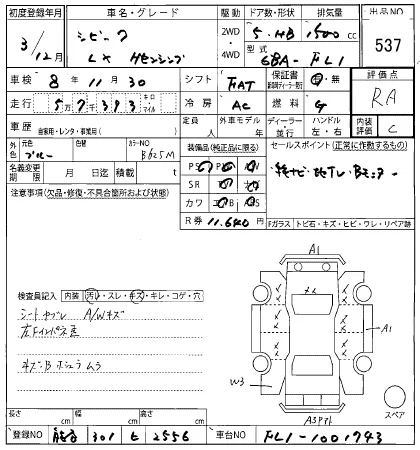 初度登録年月
車名・グレード
駆動
ドア数・形状
排気量
出品NO
3/12月
シビック
LX Hセンシング
2WD
・
4WD
5・HB
1500cc
型式
6BA-FL1
537
車検
8年11月30
シフト
FAT
保証書
有・無
燃料
G
評価点
RA
走行
57393
キロ
マイル
冷房
AC
車歴
自家用・レンタ・事業用( )
定員
人
外車モデル
年
ディーラー
並行
ハンドル
左・右
内装
評価
C
外色
元色
ブルー
色替
カラーNO
B625M
装備品(純正品に限る)
セールスポイント(正常に作動するもの)
名義変更
期限
月
日迄
積載
t
PS
PW
SR
カワ
純ナビ・地TV・Bモニター
注意事項(欠品・修復・不具合箇所および状態)
R券
11,640
円
Fガラス
トビ石・キズ・ヒビ・ワレ・リペア跡
検査員記入
内装
汚レ・スレ・キズ・キレ・コゲ・穴
シートヤブレ A/Wキズ
左Fインパネ
キズ・B
ムラ
A1
A1
W3
スペア
長さ
cm
幅
cm
高さ
cm
登録NO
301
と
2556
車台NO
FL1-1001743